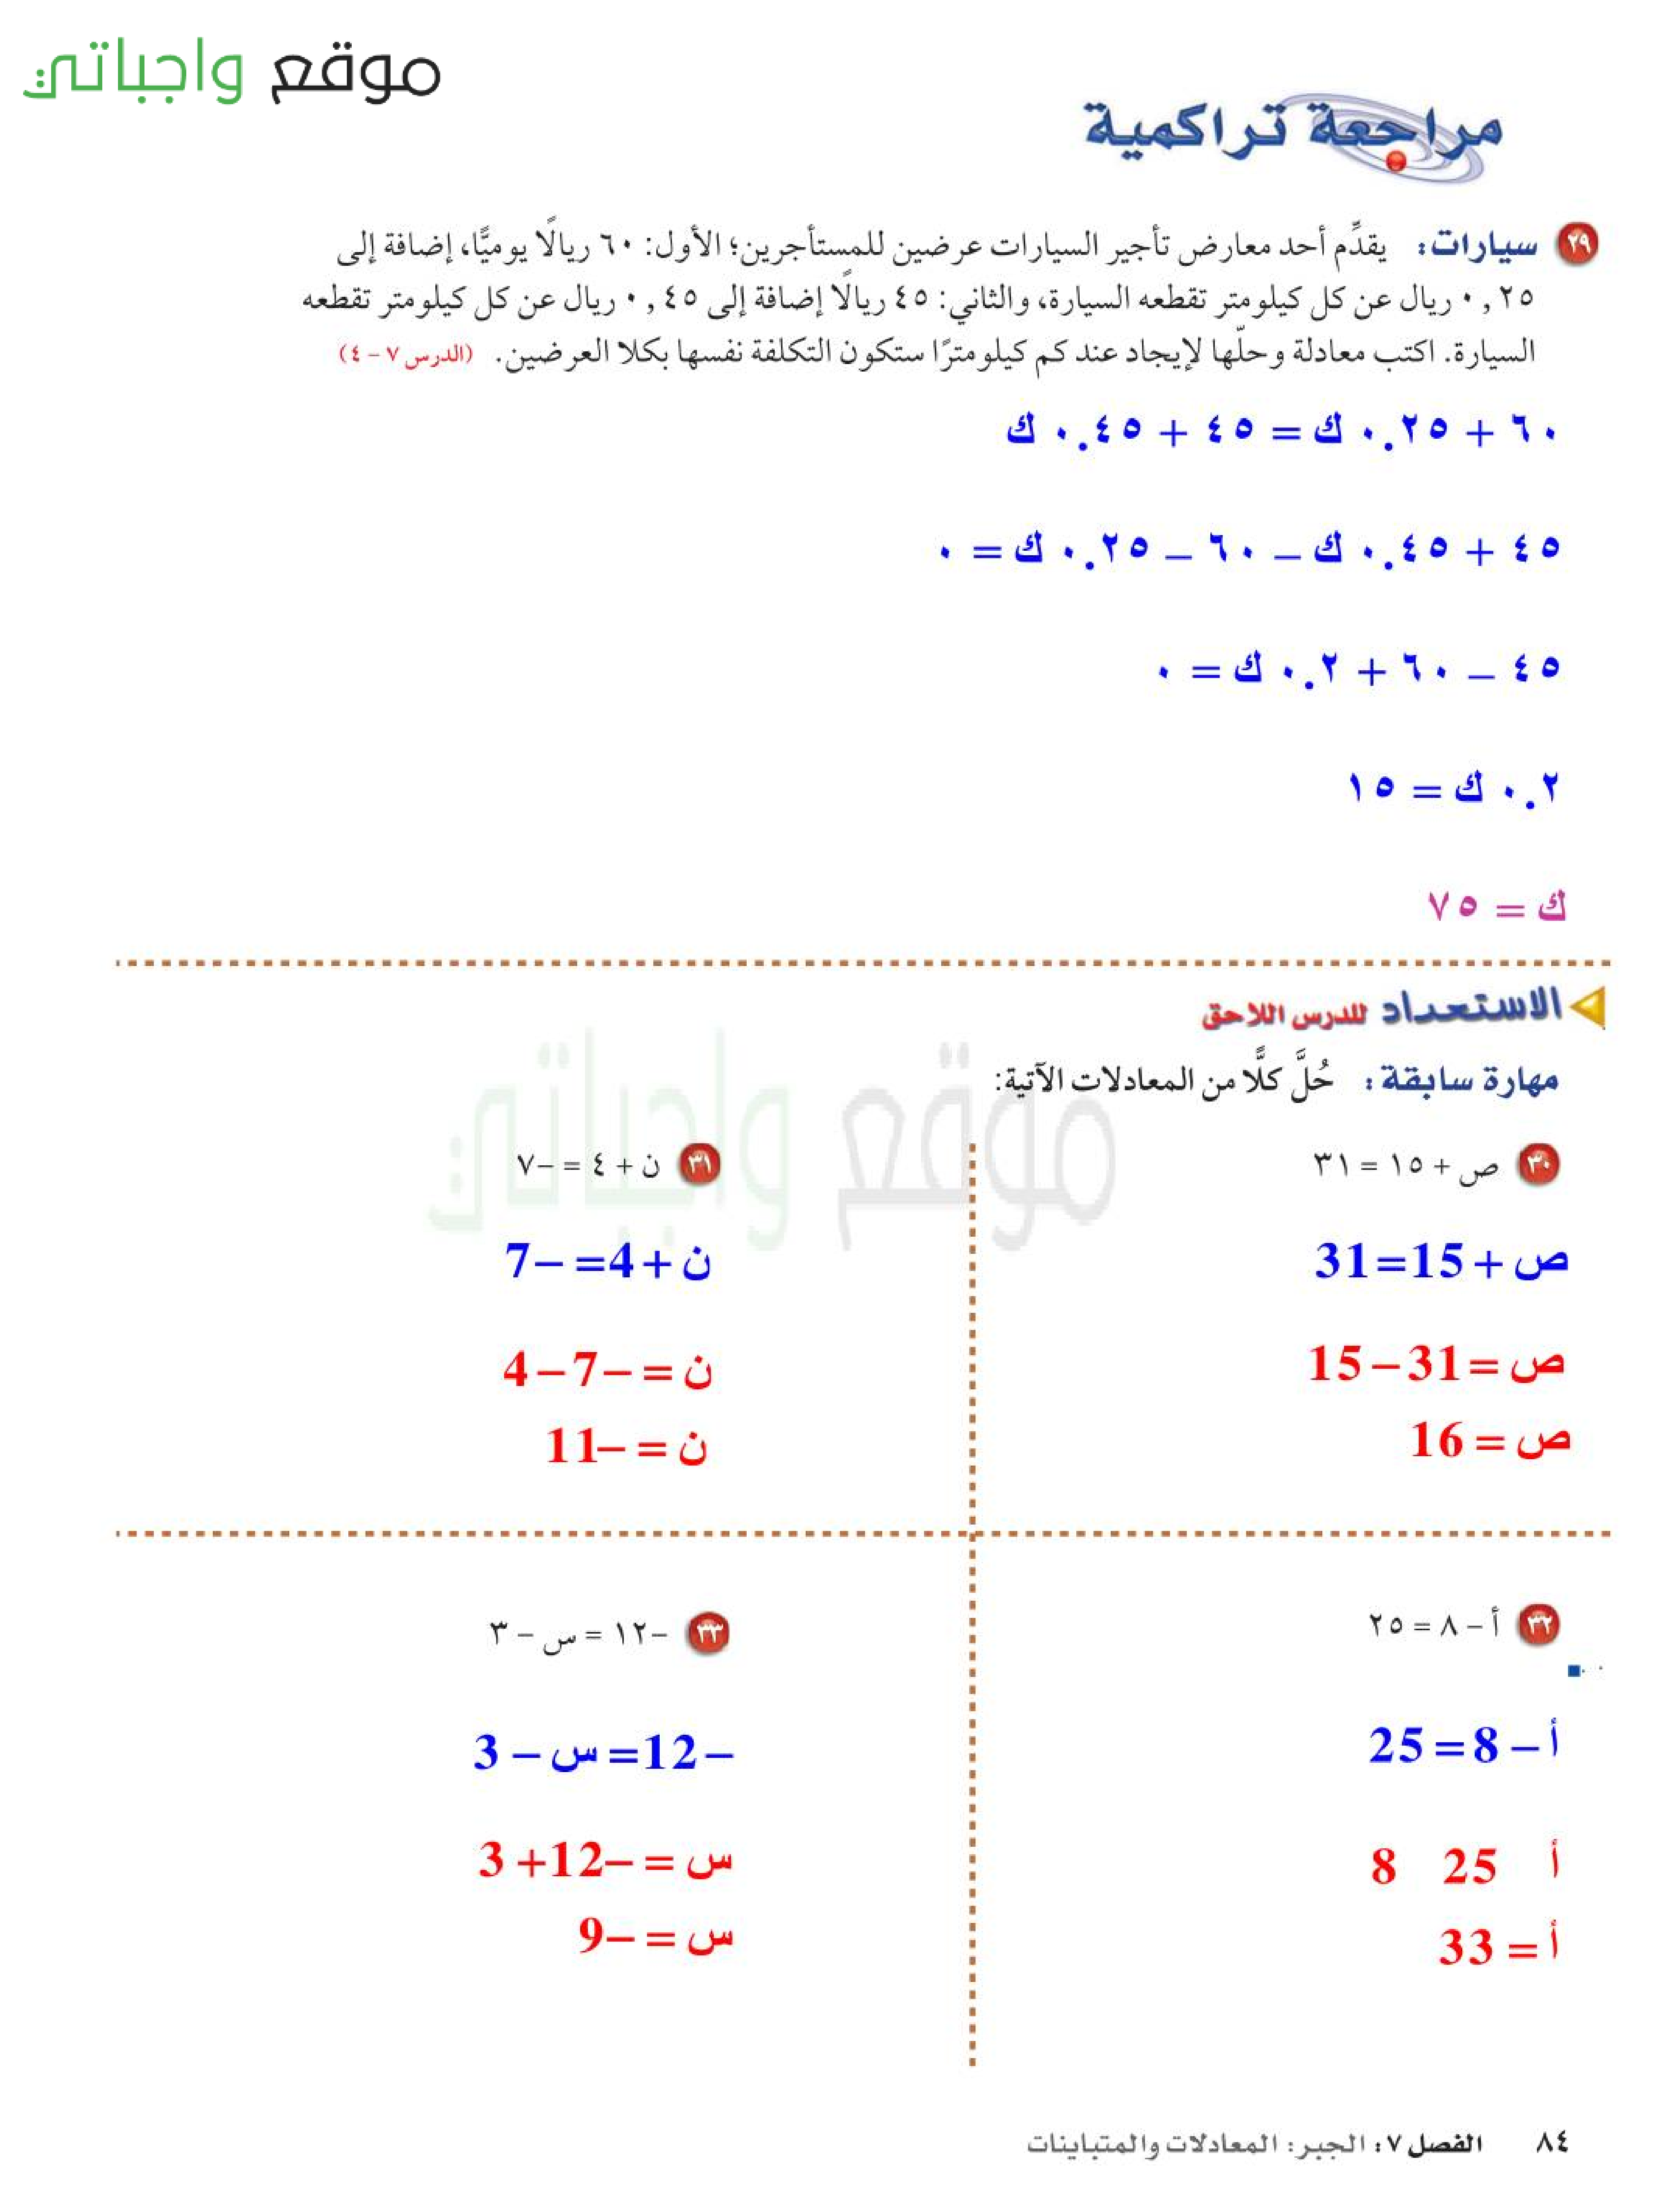 موقع واجباتي
مراجعة تراكمية
٢٩ سيارات: يقدِّم أحد معارض تأجير السيارات عرضين للمستأجرين؛ الأول: ٦٠ ريالًا يوميًّا، إضافة إلى
٠,٢٥ ريال عن كل كيلومتر تقطعه السيارة، والثاني: ٤٥ ريالًا إضافة إلى ٠,٤٥ ريال عن كل كيلومتر تقطعه
السيارة. اكتب معادلة وحلّها لإيجاد عند كم كيلومترًا ستكون التكلفة نفسها بكلا العرضين. (الدرس ٧ – ٤)
٦٠ + ٠.٢٥ ك = ٤٥ + ٠.٤٥ ك
٤٥ + ٠.٤٥ ك – ٦٠ – ٠.٢٥ ك = ٠
٤٥ – ٦٠ + ٠.٢ ك = ٠
٠.٢ ك = ١٥
ك = ٧٥
الاستعداد للدرس اللاحق
مهارة سابقة: حُلَّ كلًّا من المعادلات الآتية:
موقع واجباتي
٣٠ ص + ١٥ = ٣١
ص + 15 = 31
ص = 31 – 15
ص = 16
٣١ ن + ٤ = –٧
ن + 4 = –7
ن = –7 – 4
ن = –11
٣٢ أ – ٨ = ٢٥
أ – 8 = 25
أ 25 8
أ = 33
٣٣ –١٢ = س – ٣
–12 = س – 3
س = –12 + 3
س = –9
٨٤ الفصل ٧: الجبر: المعادلات والمتباينات